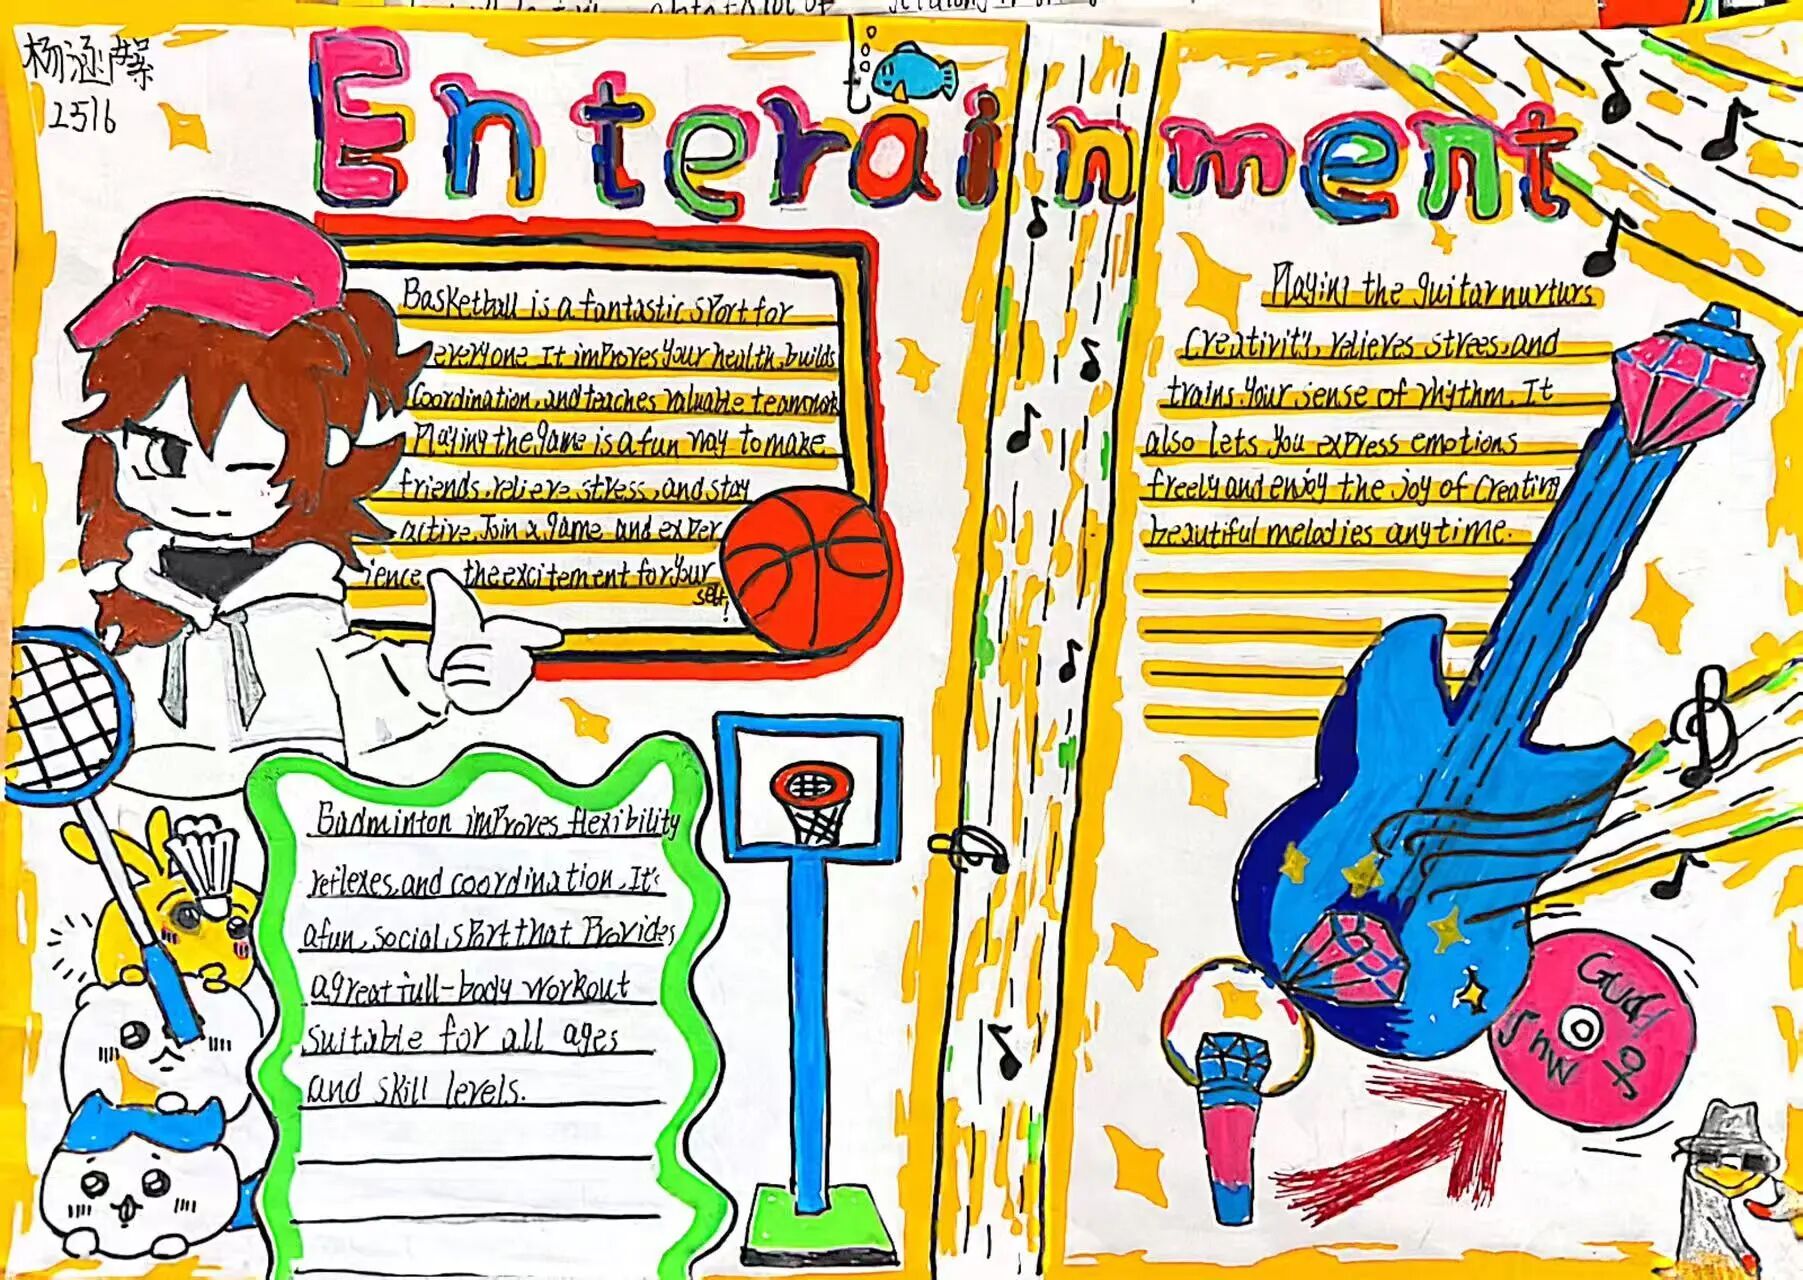 杨涵
2516
Enterainment
Basketball is a fantastic sport for
everyone. It improves your health, builds
coordination, and teaches valuable teamwork
Playing the game is a fun way to make
friends, relieve stress, and stay
active. Join a game and exper
ience the excitement for your
self!
Badminton improves flexibility
reflexes, and coordination. It's
a fun, social sport that Provides
a great full-body workout
suitable for all ages
and skill levels.
Playing the guitar nurturs
creativity, relieves strees, and
trains your sense of rhythm. It
also lets you express emotions
freely and enjoy the joy of creating
beautiful melodies anytime.